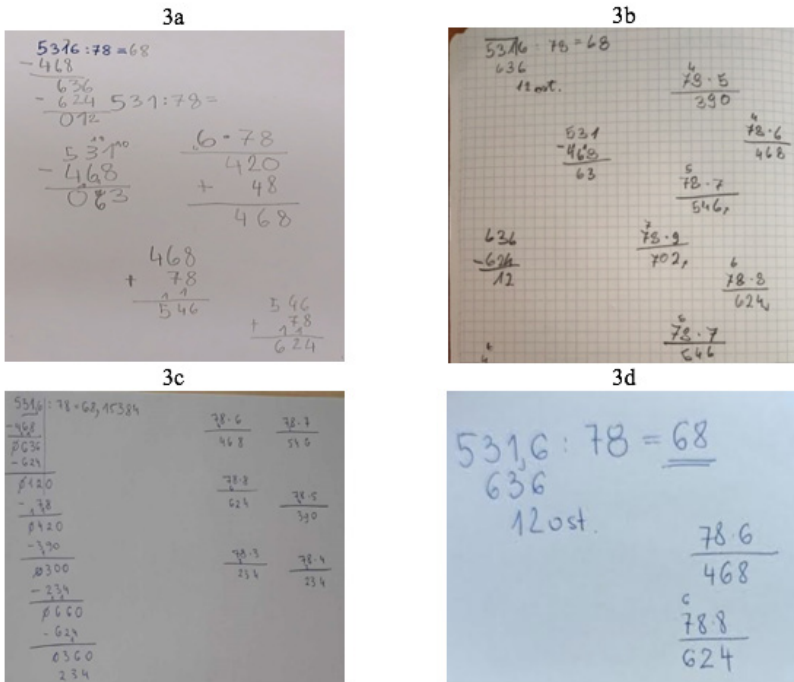 3a
5316 : 78 = 68
- 468
636
- 624
012
531 : 78 =
531
- 468
063
6 · 78
420
+ 48
468
468
+ 78
546
546
+ 78
624
3b
5316 : 78 = 68
636
12 ost.
78 · 5
390
531
-468
63
78 · 6
468
78 · 7
546
636
-624
12
78 · 9
702
78 · 8
624
78 · 7
546
3c
5316 : 78 = 68,15384
-468
0636
-624
0120
- 78
0420
-390
0300
-234
0660
-624
0360
234
78 · 6
468
78 · 7
546
78 · 8
624
78 · 5
390
78 · 3
234
78 · 4
234
3d
531,6 : 78 = 68
636
12 ost.
78 · 6
468
6
78 · 8
624